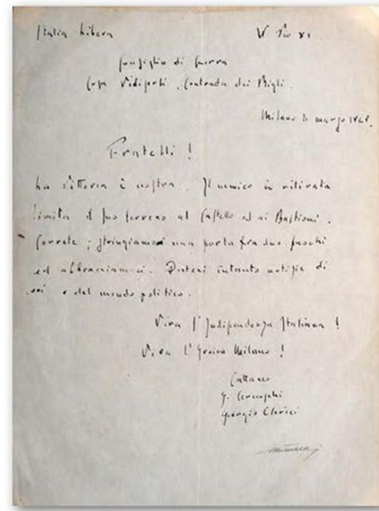 Italia Libera W Pio XI
Consiglio di Guerra
Casa Vidiserti. Contrada dei Bigli.
Milano marzo 1848.
Fratelli !
La Vittoria è nostra. Il nemico in ritirata
limita il suo terreno al Castello ed ai Bastioni.
Correte ; stringiamoci una porta fra due fuochi
ed abbracciamoci. Dateci intanto notizie di
voi e del mondo politico.
Viva l'Indipendenza Italiana !
Viva l'Eroica Milano !
Cattaneo
G. Cernuschi
Giorgio Clerici